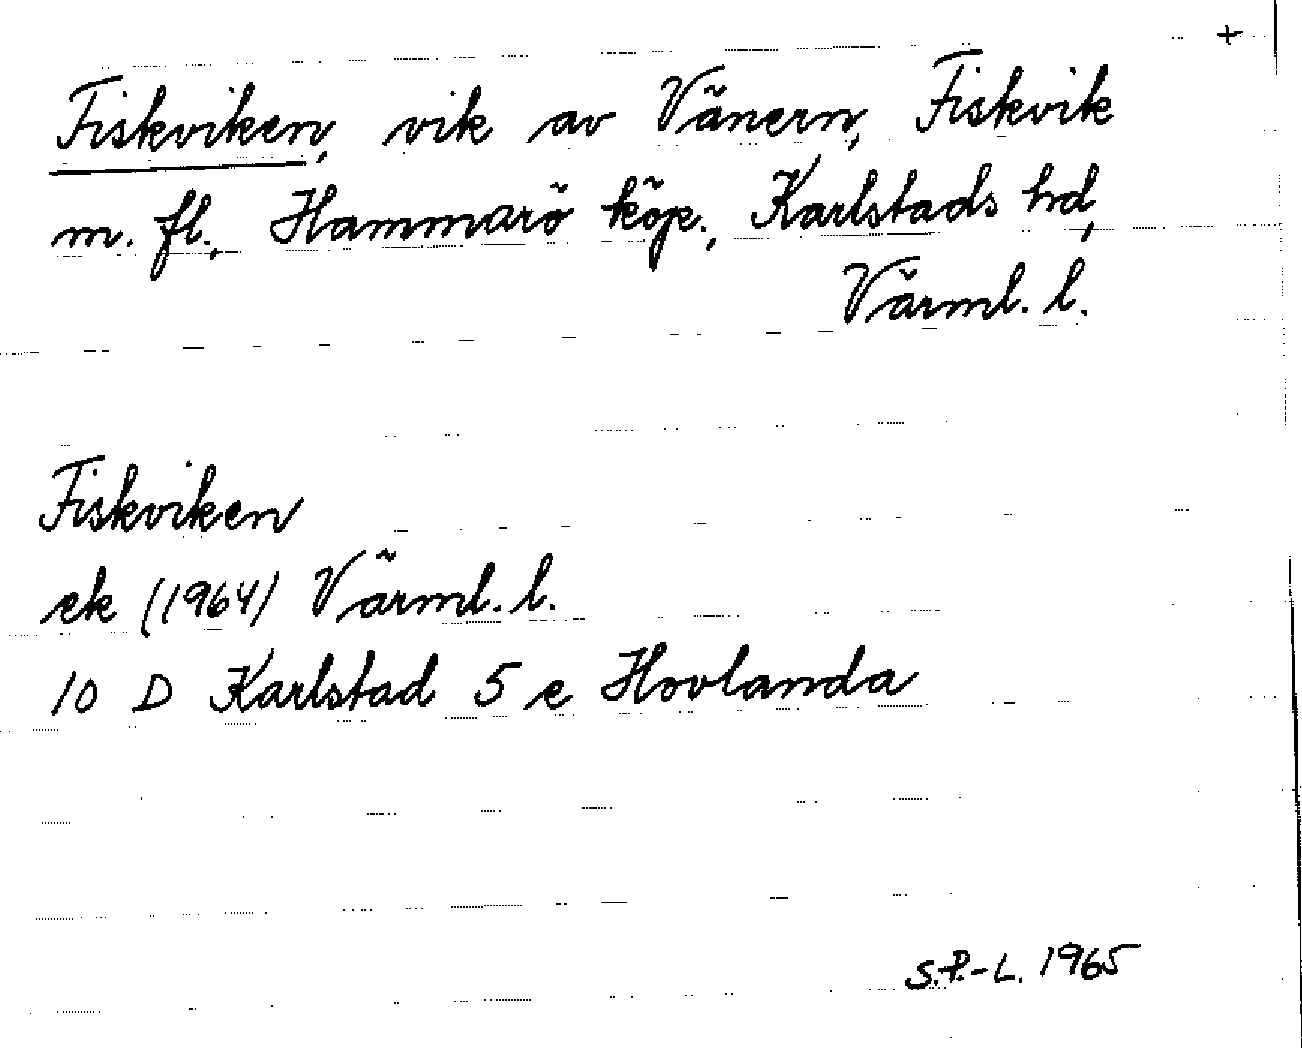 +
Fiskviken, vik av Vänern, Fiskvik
m. fl., Hammarö köp., Karlstads hd,
Värml. l.
Fiskviken
ek (1964) Värml. l.
10 D Karlstad 5 e Hovlanda
S.P.-L. 1965